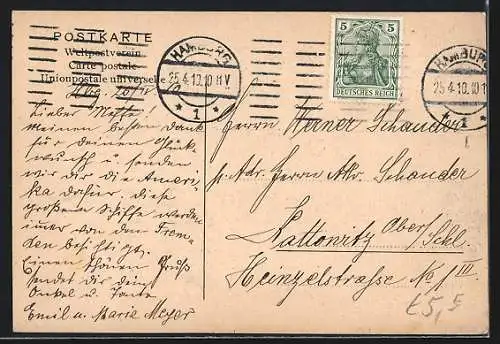 POSTKARTE
Weltpostverein
Carte postale
Unionpostale universelle
HAMBURG
25.4.10.10 11V
* 1 *
5 5
DEUTSCHES REICH
HAMBURG
25.4.10.10 1
* 1
Hbg.
Lieber Neffe!
Meinen besten Dank
für deinen Glück
wunsch u. senden
wir dir die Ameri
ka daher. diese
großen Schiffe werden
imer von den Frem
den besichtigt.
Einen schönen Gruß
sendet dir dein
Onkel u. Tante
Emil u. Marie Meyer
Herrn Werner Schauder
p. Adr. Herrn Alw. Schauder
Kattowitz Ober/Schl.
Heinzelstrasse No 1 III
£5,5